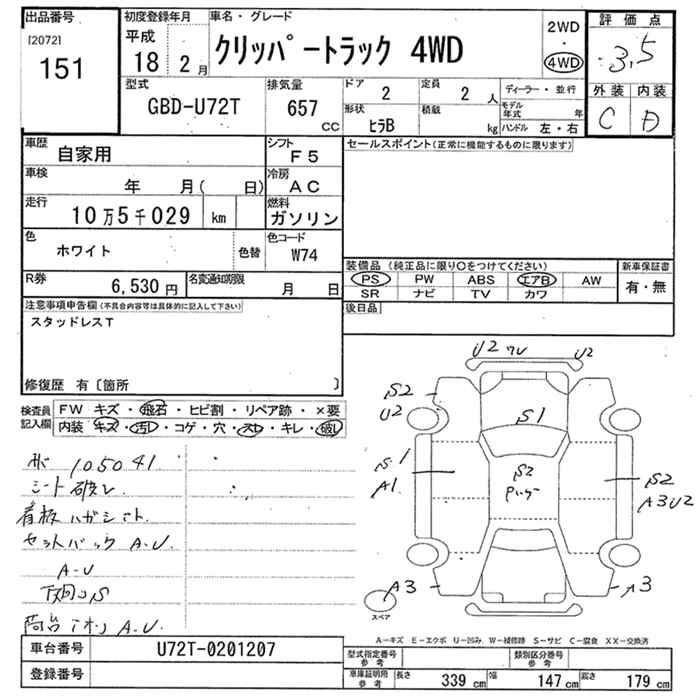 出品番号
[2072]
151
初度登録年月
平成
18 2月
車名・グレード
クリッパートラック 4WD
2WD
・
4WD
評価点
3.5
外装 内装
C D
型式
GBD-U72T
排気量
657
CC
ドア
2
定員
2 人
ディーラー・並行
形状
ヒラB
積載
kg
モデル年式 年
ハンドル 左・右
車歴
自家用
シフト
F5
セールスポイント(正常に機能するものに限ります)
車検
年 月( 日)
冷房
AC
走行
10万5千029 km
燃料
ガソリン
色
ホワイト
色替
色コード
W74
R券
6,530円
名変通知期限
月 日
装備品 (純正品に限り○をつけてください)
新車保証書
PS PW ABS エアB AW
有・無
SR ナビ TV カワ
注意事項申告欄(不具合内容等は具体的に記入して下さい)
後日品
スタッドレスT
修復歴 有〔箇所 〕
検査員記入欄
FW キズ・飛石・ヒビ割・リペア跡・×要
内装・キズ・汚レ・コゲ・穴・スレ・キレ・破レ
105041
シート破レ
看板ハガシ
セットバック A-U.
A-U
A-U.
U2 ワレ U2
S2
U2
S1
S1
A1
S2
S2
A3 U2
A3
スペア
A-キズ E-エクボ U-凹み W-補修跡 S-サビ C-腐食 XX-交換済
車台番号
U72T-0201207
型式指定番号
参考
類別区分番号
参考
登録番号
車庫証明用
参考
長さ 339 cm 幅 147 cm 高さ 179 cm